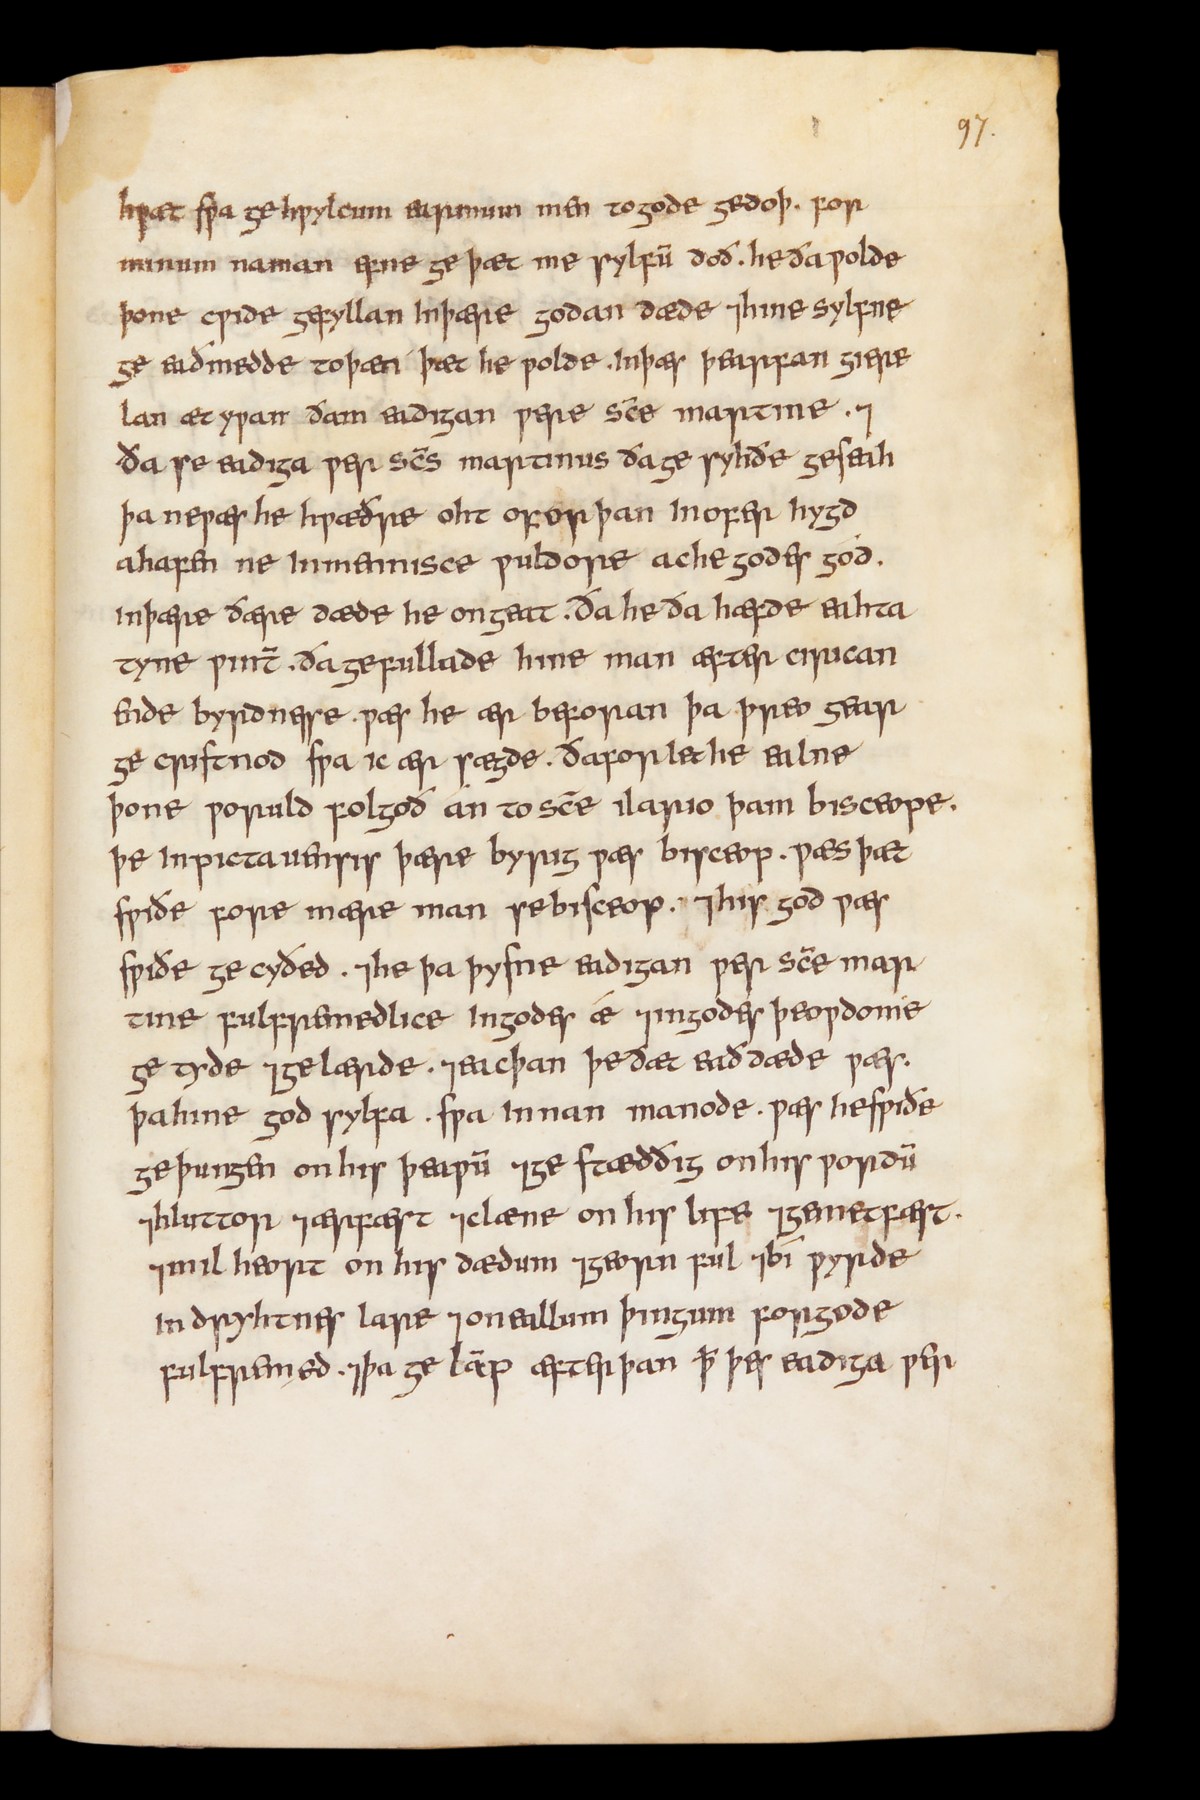 97.
hƿæt sƿa ge hƿylcum earmum men to gode gedoþ. for
minum naman efne ge þæt me sylfū doð. he ða ƿolde
þone cƿide gefyllan in þære godan dæde ⁊ hine sylfne
ge eaðmedde to þæn þæt he ƿolde. in þæs þearfan gierе
lan ætyƿan ðam eadigan ƿere sc̄e martine. ⁊
ða se eadiga ƿer sc̄s martinus ða ge syhðe geseah
þa ne ƿæs he hƿæðre oht ofor þan in ofer hygd
ahafen ne in mennisce ƿuldore ac he godes gód.
in þære ðære dæde he ongeat. ða he ða hæfde eahta
tyne ƿint̄. ða gefullade hine man æfter cirican
ende byrdnesse. ƿæs he ær beforan þa þreo gear
ge cristnod sƿa ic ær sægde. ða forlet he ealne
þone ƿoruld folgoð án to sc̄e ilario þam bisceope.
þe in pictauensis þære byrig ƿæs bisceop. ƿæs þæt
sƿiðe fore mære man se bisceop. ⁊ his god ƿæs
sƿiðe ge cyðed. ⁊ he þa þysne eadigan ƿer sc̄e mar
tine fulfremedlice in godes ǽ ⁊ in godes þeoƿdome
ge tyde ⁊ ge lærde. ⁊ eac þan þe ðæt eað dæde ƿæs.
þa hine god sylfa. sƿa innan manode. ƿæs he sƿiðe
ge þungen on his þeaƿū ⁊ ge stæððig on his ƿordū
⁊ hluttor ⁊ ærfæst ⁊ clæne on his life ⁊ gemetfæst.
⁊ mil heort on his dædum ⁊ georn ful ⁊ bí ƿyrde
in dryhtnes lare ⁊ on eallum þingum for gode
fulfremed. ⁊ þa ge lāp æfter þan ꝥ þes eadiga ƿer